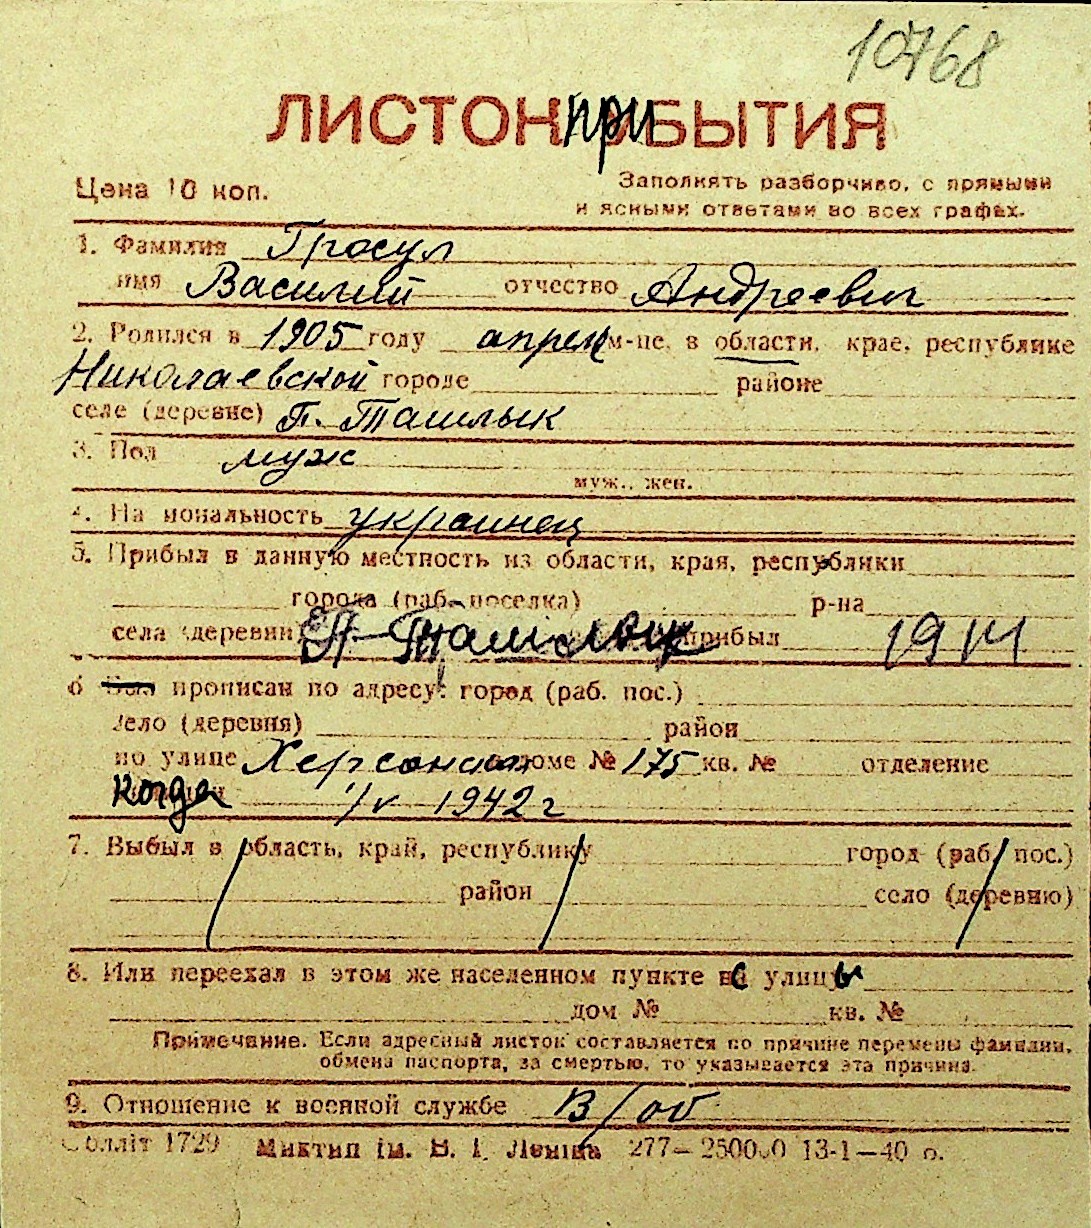 10768
ЛИСТОК ПРИБЫТИЯ
Цена 10 коп.
Заполнять разборчиво, с прямыми
и ясными ответами во всех графах.
1. Фамилия Гросул
имя Василий отчество Андреевич
2. Родился в 1905 году апрел м-це, в области, крае, республике
Николаевской городе районе
селе (деревне) П. Ташлык
3. Пол муж
муж., жен.
4. Национальность украинец
5. Прибыл в данную местность из области, края, республики
города (раб. поселка) р-на
села (деревни) П-Ташлык прибыл 1914
6 Был прописан по адресу: город (раб. пос.)
село (деревня) район
по улице Херсонская доме № 175 кв. № отделение
когда IV 1942 г
7. Выбыл в область, край, республику город (раб. пос.)
район село (деревню)
8. Или переехал в этом же населенном пункте с улицы
дом № кв. №
Примечание. Если адресный листок составляется по причине перемены фамилии,
обмена паспорта, за смертью, то указывается эта причина.
9. Отношение к военной службе в/об
Облліт 1729 Миктип ім. В. І. Леніна 277—250000 13-1—40 р.